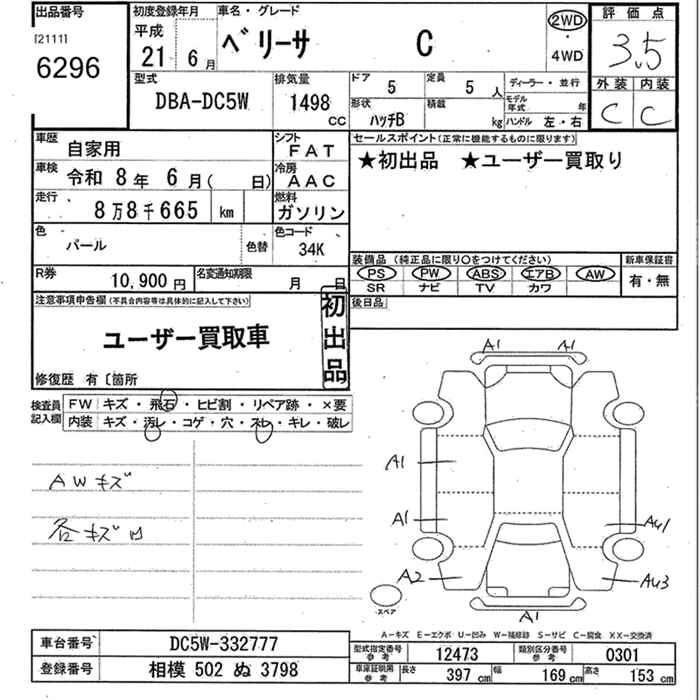 出品番号
[21111]
6296
初度登録年月
平成
21 6 月
車名・グレード
ベリーサ C
2WD
・
4WD
評価点
3.5
外装 内装
C C
型式
DBA-DC5W
排気量
1498
CC
ドア
5
定員
5 人
ディーラー・並行
形状
ハッチB
積載
kg
モデル年式 年
ハンドル 左・右
車歴
自家用
シフト
FAT
車検
令和 8 年 6 月( 日)
冷房
AAC
走行
8万8千665 km
燃料
ガソリン
色
パール
色替
色コード
34K
R券
10,900 円
名変通知期限
月 日
セールスポイント(正常に機能するものに限ります)
★初出品 ★ユーザー買取り
装備品 (純正品に限り○をつけてください)
PS PW ABS エアB AW
SR ナビ TV カワ
新車保証書
有・無
後日品
注意事項申告欄(不具合内容等は具体的に記入して下さい)
ユーザー買取車
初出品
修復歴 有〔箇所
検査員記入欄
FW キズ・飛石・ヒビ割・リペア跡・×要
内装 キズ・汚レ・コゲ・穴・スレ・キレ・破レ
AWキズ
各キズ凹
A1 A1
A1
A1 AU1
A2 AU3
A1
スペア
A-キズ E-エクボ U-凹み W-補修跡 S-サビ C-腐食 XX-交換済
車台番号
DC5W-332777
登録番号
相模 502 ぬ 3798
型式指定番号
参考
12473
類別区分番号
参考
0301
車庫証明用
参考
長さ
397 cm
幅
169 cm
高さ
153 cm